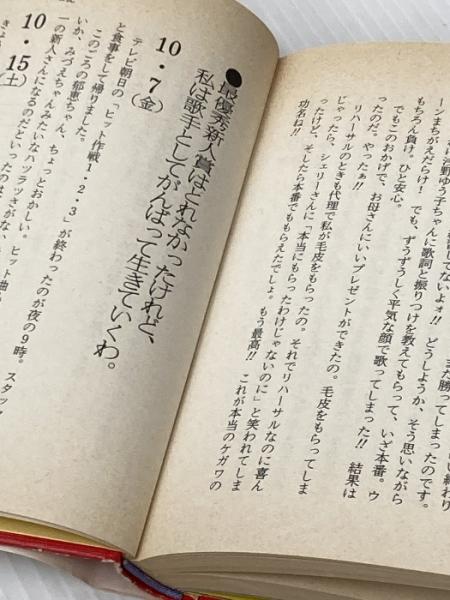 ーンまちがえだらけ! でも、ずうずうしく平気な顔で歌ってしまった!! 結果は
もちろん負け。ひと安心。
でもこのおかげで、お母さんにいいプレゼントができたの。毛皮をもらってしま
ったのだ。やったぁ!!
リハーサルのときも代理で私が毛皮をもらったの。それでリハーサルなのに喜ん
じゃったら、シェリーさんに「本当にもらったわけじゃないのに」と笑われてしま
ったけど、そしたら本番でももらえたでしょ。もう最高!! これが本当のケガワの
功名ね!!
●最優秀新人賞はとれなかったけれど、
私は歌手としてがんばって生きていくわ。
10・7(金)
テレビ朝日の「ヒット作戦1・2・3」が終わったのが夜の9時。スタッフ
と食事をして帰りました。
このごろの郁恵ちゃん、ちょっとおかしい。ヒット曲
いか、みづえちゃんみたいなハツラツさがない
一の新人さんになるのだといったのは
10・15(土)